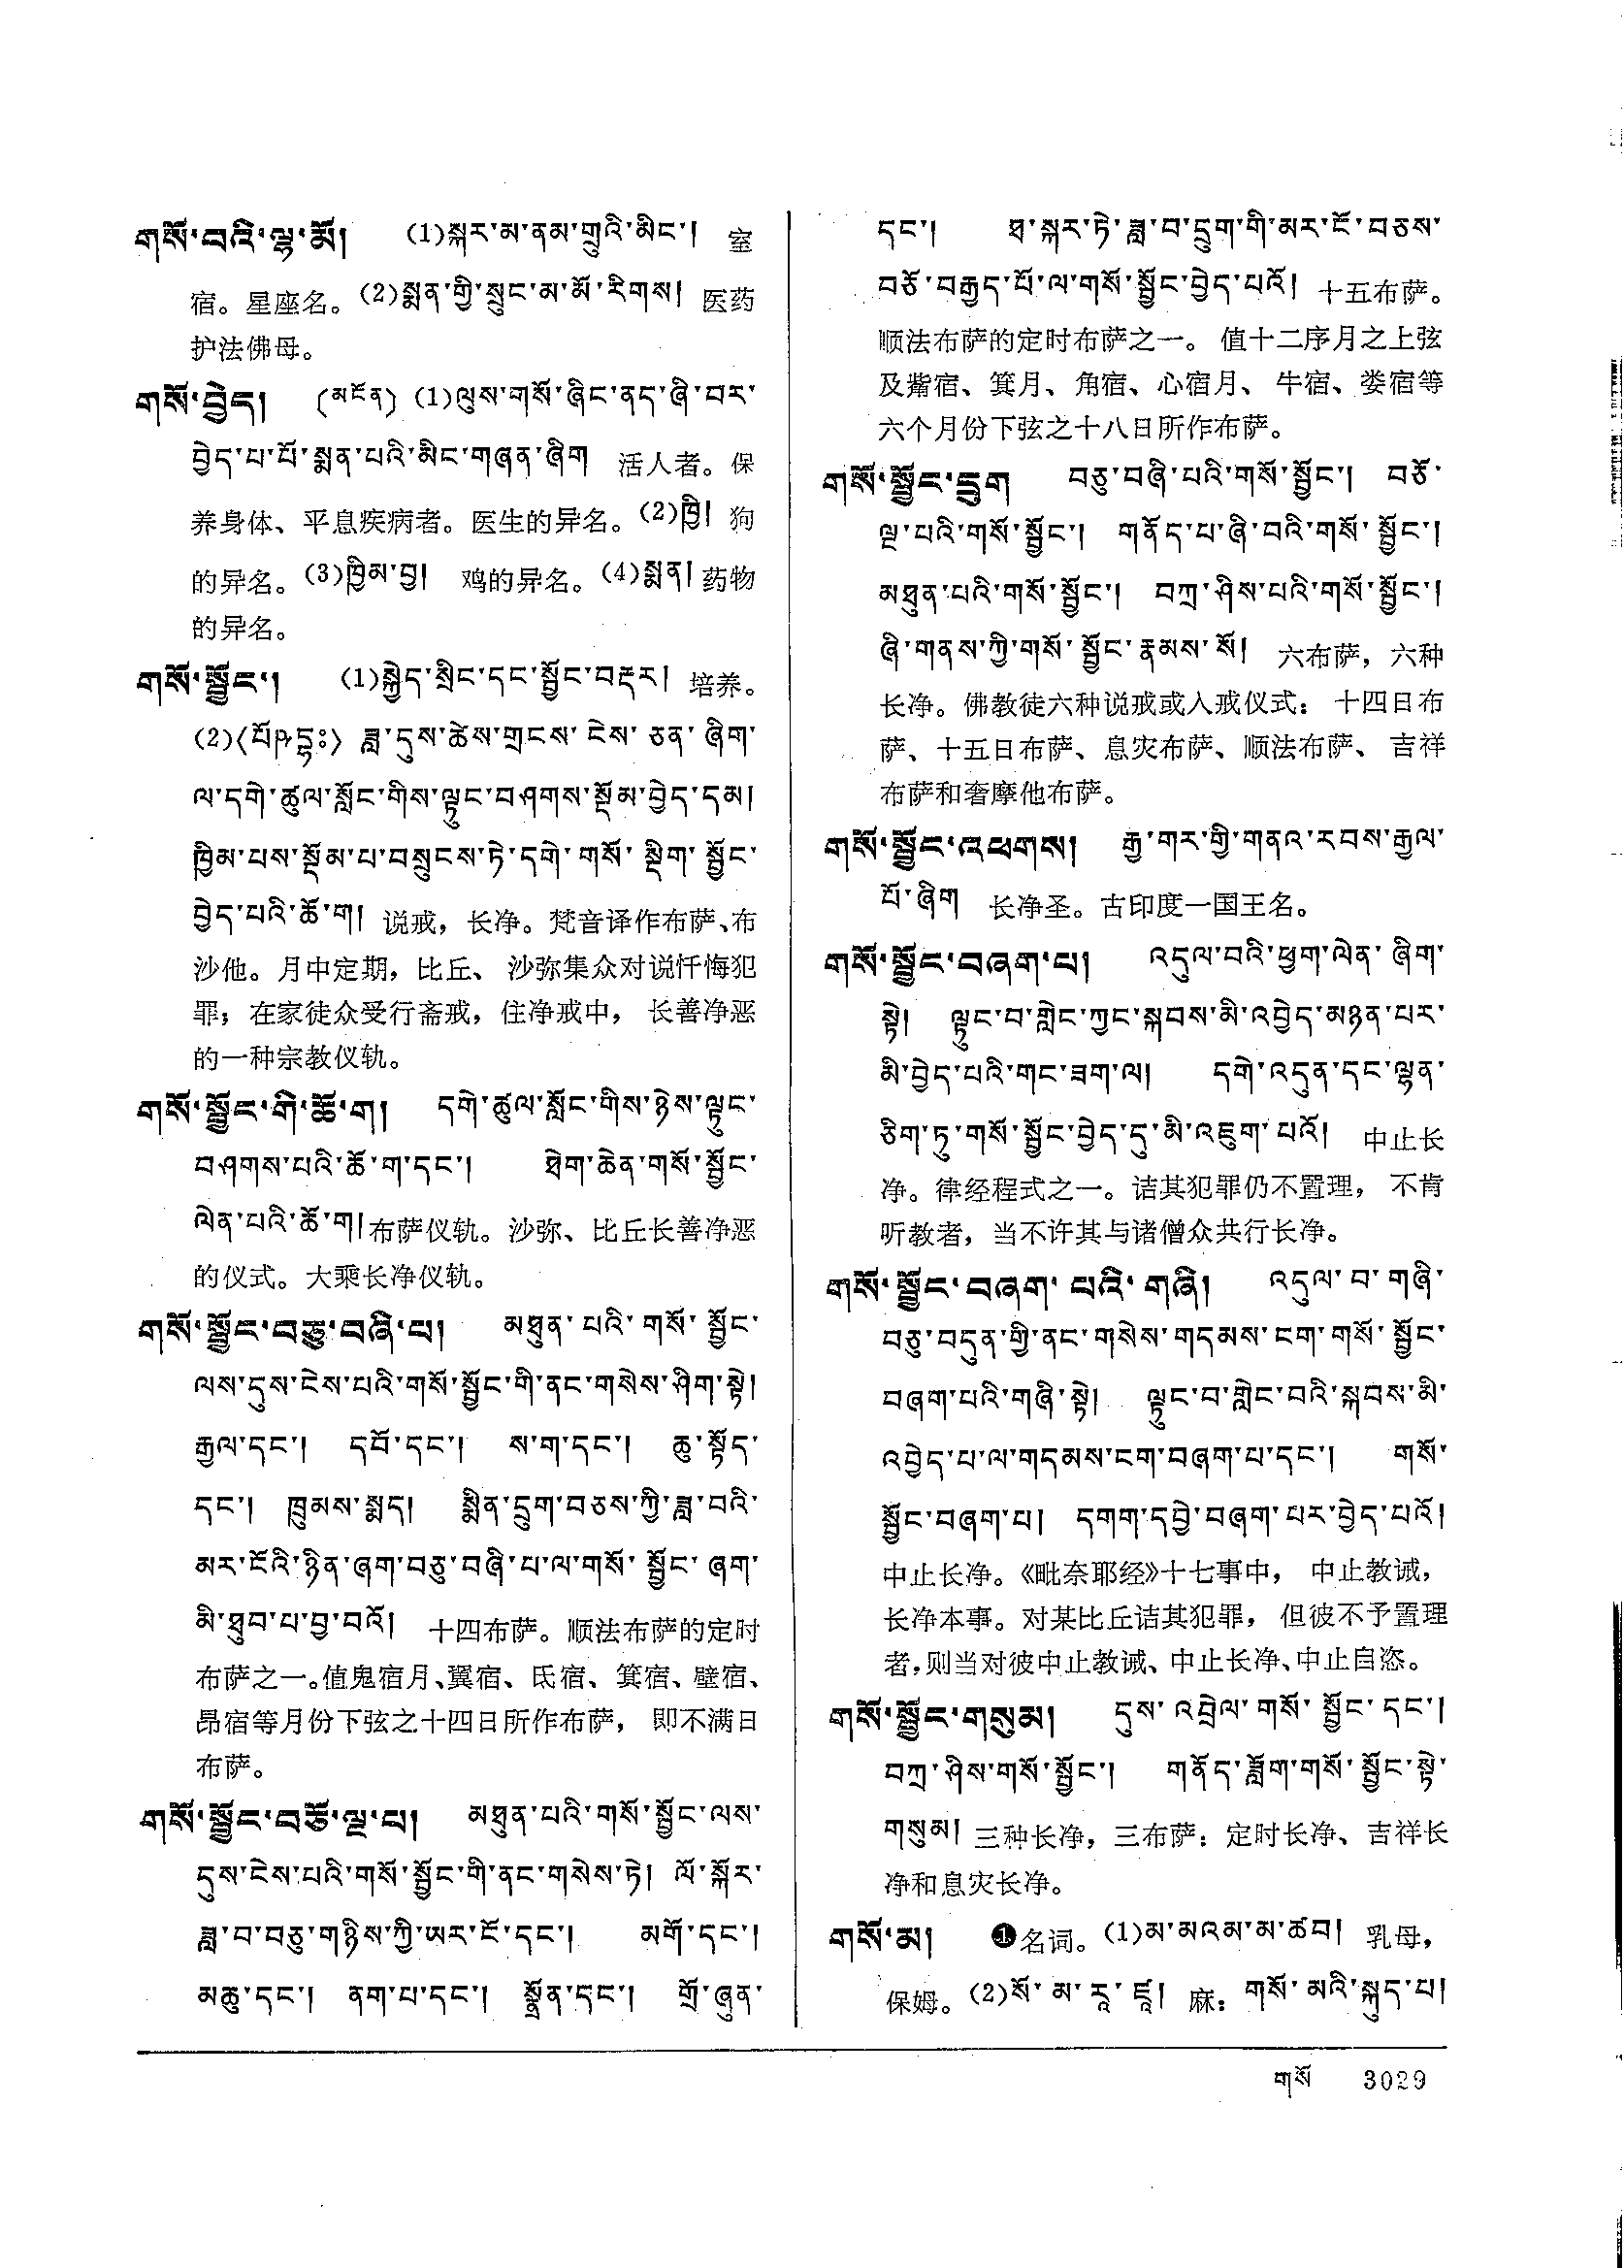 གསོ་བའི་ལྷ་མོ། (1)སྐར་མ་ནམ་གྲུའི་མིང་། 室
宿。星座名。(2)སྨན་གྱི་སྲུང་མ་མོ་རིགས། 医药
护法佛母。
གསོ་བྱེད། (མངོན) (1)ལུས་གསོ་ཞིང་ནད་ཞི་བར་
བྱེད་པ་པོ་སྨན་པའི་མིང་གཞན་ཞིག 活人者。保
养身体、平息疾病者。医生的异名。(2)ཁྱི། 狗
的异名。(3)ཁྱིམ་བྱ། 鸡的异名。(4)སྨན། 药物
的异名。
གསོ་སྦྱོང་། (1)སྐྱེད་སྲིང་དང་སྦྱོང་བརྡར། 培养。
(2) ཟླ་དུས་ཚེས་གྲངས་ངེས་ཅན་ཞིག་
ལ་དགེ་ཚུལ་སློང་གིས་ལྟུང་བཤགས་སྡོམ་བྱེད་དམ།
ཁྱིམ་པས་སྡོམ་པ་བསྲུངས་ཏེ་དགེ་གསོ་སྡིག་སྦྱོང་
བྱེད་པའི་ཆོ་ག། 说戒，长净。梵音译作布萨、布
沙他。月中定期，比丘、沙弥集众对说忏悔犯
罪；在家徒众受行斋戒，住净戒中，长善净恶
的一种宗教仪轨。
གསོ་སྦྱོང་གི་ཆོ་ག། དགེ་ཚུལ་སློང་གིས་ཉེས་ལྟུང་
བཤགས་པའི་ཆོ་ག་དང་། ཐེག་ཆེན་གསོ་སྦྱོང་
ལེན་པའི་ཆོ་ག།布萨仪轨。沙弥、比丘长善净恶
的仪式。大乘长净仪轨。
གསོ་སྦྱོང་བཅུ་བཞི་པ། མཐུན་པའི་གསོ་སྦྱོང་
ལས་དུས་ངེས་པའི་གསོ་སྦྱོང་གི་ནང་གསེས་ཤིག་སྟེ།
རྒྱལ་དང་། དབོ་དང་། ས་ག་དང་། ཆུ་སྟོད་
དང་། ཁྲུམས་སྨད། སྨིན་དྲུག་བཅས་ཀྱི་ཟླ་བའི་
མར་ངོའི་ཉིན་ཞག་བཅུ་བཞི་པ་ལ་གསོ་སྦྱོང་ཞག་
མི་ཐུབ་པ་བྱ་བའོ། 十四布萨。顺法布萨的定时
布萨之一。值鬼宿月、翼宿、氐宿、箕宿、壁宿、
昂宿等月份下弦之十四日所作布萨，即不满日
布萨。
གསོ་སྦྱོང་བཅོ་ལྔ་པ། མཐུན་པའི་གསོ་སྦྱོང་ལས་
དུས་ངེས་པའི་གསོ་སྦྱོང་གི་ནང་གསེས་ཏེ། ལོ་སྐོར་
ཟླ་བ་བཅུ་གཉིས་ཀྱི་ཡར་ངོ་དང་། མགོ་དང་།
མཆུ་དང་། ནག་པ་དང་། སྣྲོན་དང་། གྲོ་ཞུན་
དང་། ཐ་སྐར་ཏེ་ཟླ་བ་དྲུག་གི་མར་ངོ་བཅས་
བཅོ་བརྒྱད་པོ་ལ་གསོ་སྦྱོང་བྱེད་པའོ། 十五布萨。
顺法布萨的定时布萨之一。值十二序月之上弦
及觜宿、箕月、角宿、心宿月、牛宿、娄宿等
六个月份下弦之十八日所作布萨。
གསོ་སྦྱོང་དྲུག བཅུ་བཞི་པའི་གསོ་སྦྱོང་། བཅོ་
ལྔ་པའི་གསོ་སྦྱོང་། གནོད་པ་ཞི་བའི་གསོ་སྦྱོང་།
མཐུན་པའི་གསོ་སྦྱོང་། བཀྲ་ཤིས་པའི་གསོ་སྦྱོང་།
ཞི་གནས་ཀྱི་གསོ་སྦྱོང་རྣམས་སོ། 六布萨，六种
长净。佛教徒六种说戒或入戒仪式：十四日布
萨、十五日布萨、息灾布萨、顺法布萨、吉祥
布萨和奢摩他布萨。
གསོ་སྦྱོང་འཕགས། རྒྱ་གར་གྱི་གནའ་རབས་རྒྱལ་
པོ་ཞིག 长净圣。古印度一国王名。
གསོ་སྦྱོང་བཞག་པ། འདུལ་བའི་ཕྱག་ལེན་ཞིག་
སྟེ། ལྟུང་བ་གླེང་ཀྱང་སྐབས་མི་འབྱེད་མཉན་པར་
མི་བྱེད་པའི་གང་ཟག་ལ། དགེ་འདུན་དང་ལྷན་
ཅིག་ཏུ་གསོ་སྦྱོང་བྱེད་དུ་མི་འཇུག་པའོ། 中止长
净。律经程式之一。诘其犯罪仍不置理，不肯
听教者，当不许其与诸僧众共行长净。
གསོ་སྦྱོང་བཞག་པའི་གཞི། འདུལ་བ་གཞི་
བཅུ་བདུན་གྱི་ནང་གསེས་གདམས་ངག་གསོ་སྦྱོང་
བཞག་པའི་གཞི་སྟེ། ལྟུང་བ་གླེང་བའི་སྐབས་མི་
འབྱེད་པ་ལ་གདམས་ངག་བཞག་པ་དང་། གསོ་
སྦྱོང་བཞག་པ། དགག་དབྱེ་བཞག་པར་བྱེད་པའོ།
中止长净。《毗奈耶经》十七事中，中止教诫，
长净本事。对某比丘诘其犯罪，但彼不予置理
者，则当对彼中止教诫、中止长净、中止自恣。
གསོ་སྦྱོང་གསུམ། དུས་འབྲེལ་གསོ་སྦྱོང་དང་།
བཀྲ་ཤིས་གསོ་སྦྱོང་། གནོད་ཟློག་གསོ་སྦྱོང་སྟེ་
གསུམ། 三种长净，三布萨：定时长净、吉祥长
净和息灾长净。
གསོ་མ། ❶名词。(1)མ་མའམ་མ་ཚབ། 乳母，
保姆。(2)སོ་མ་རཱ་ཛཱ། 麻：གསོ་མའི་སྐུད་པ།
གསོ 3029